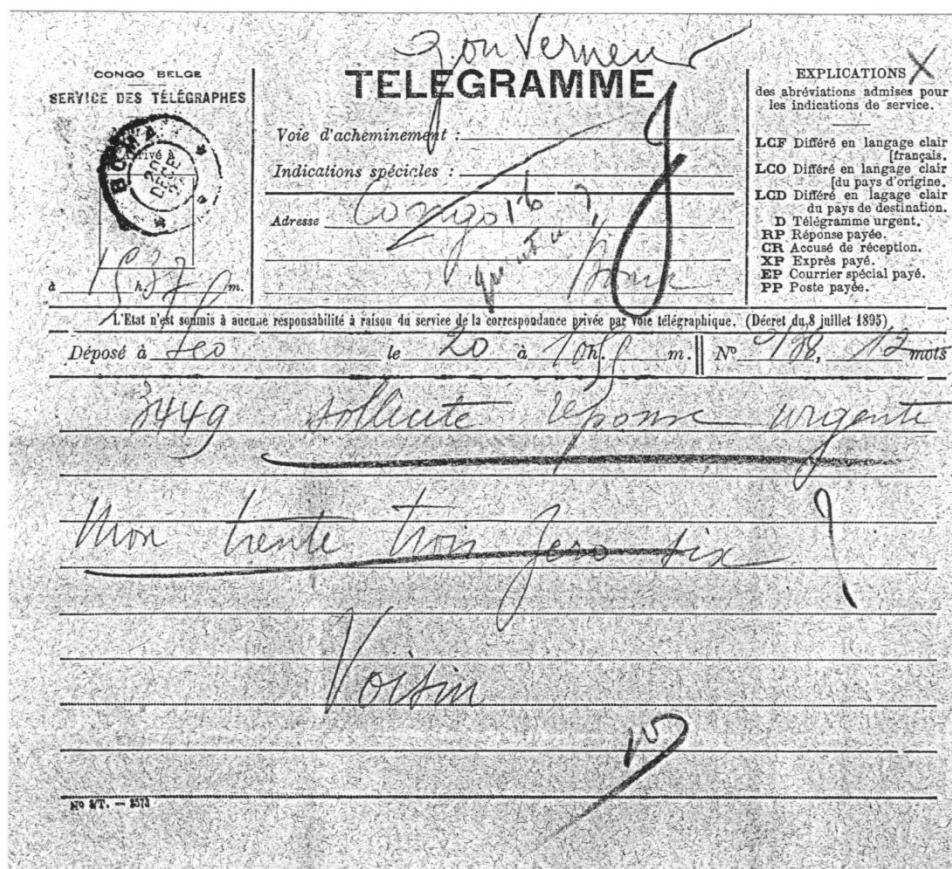 Gouverneur
CONGO BELGE
SERVICE DES TÉLÉGRAPHES
Arrivé à
BOMA
20
DECE
à 15 h. 37 m.
TELEGRAMME
Voie d'acheminement :
Indications spéciales :
Adresse Congo 16
Boma
EXPLICATIONS X
des abréviations admises pour
les indications de service.
LCF Différé en langage clair
[français.
LCO Différé en langage clair
[du pays d'origine.
LCD Différé en lagage clair
du pays de destination.
D Télégramme urgent.
RP Réponse payée.
CR Accusé de réception.
XP Exprès payé.
EP Courrier spécial payé.
PP Poste payée.
L'Etat n'est soumis à aucune responsabilité à raison du service de la correspondance privée par voie télégraphique. (Décret du 8 juillet 1895)
Déposé à Leo le 20 à 10 h. 55 m. No 12 mots
3449 sollicite réponse urgente
Mon trente trois zero six ?
Voisin
No 2/T. — 2573